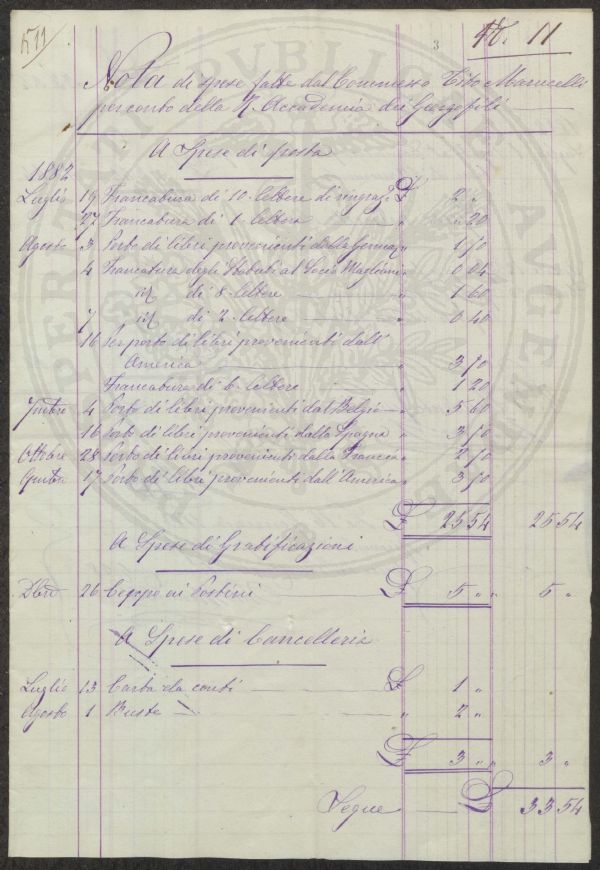 511
3
N. 11
Nota di spese fatte dal Commesso Tito Marucelli
per conto della R. Accademia dei Georgofili
A Spese di posta
1882
Luglio 19 Francatura di 10 lettere di ringraz. £ 2 "
" 27 Francatura di 1 lettera " " 20
Agosto 3 Porto di libri provenienti dalla Germa " 1 70
4 Francatura degli Statuti al Socio Magliani " 0 04
id di 8 lettere " 1 60
7 id di 2 lettere " 0 40
16 Per porto di libri provenienti dall'
America " 3 70
Francatura di 6 lettere " 1 20
7mbre 4 Porto di libri provenienti dal Belgio " 5 60
16 Porto di libri provenienti dalla Spagna " 3 70
Ottobre 28 Porto di libri provenienti dalla Francia " 2 70
9mbre 17 Porto di libri provenienti dall'America " 3 70
£ 25 54 25 54
A Spese di Gratificazioni
Dbre 26 Ceppo ai Postini £ 5 " " 5 "
A Spese di Cancelleria
Luglio 13 Carta da conti £ 1 "
Agosto 1 Buste " 2 "
£ 3 " " 3 "
Segue £ 33 54
PVBLIC